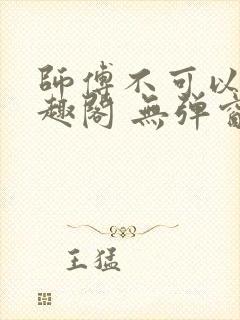 師傅不可以
趣閣 無弹
王猛